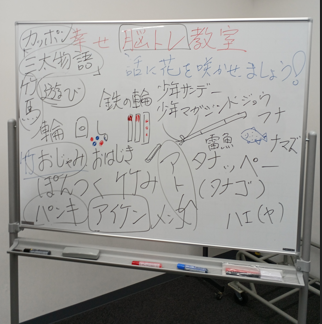 カッポン 幸せ 脳トレ 教室
三大物語 話に花を咲かせましょう!
竹馬 遊び 鉄の輪 少年サンデー
少年マガジンドジョウ
輪 フナ
雷魚 ナマズ
おじゃみ おはじき アト タナッペー
ぽんつく 竹み (タナゴ)
パンキ アイケン メンタ ハエ(ヤ)